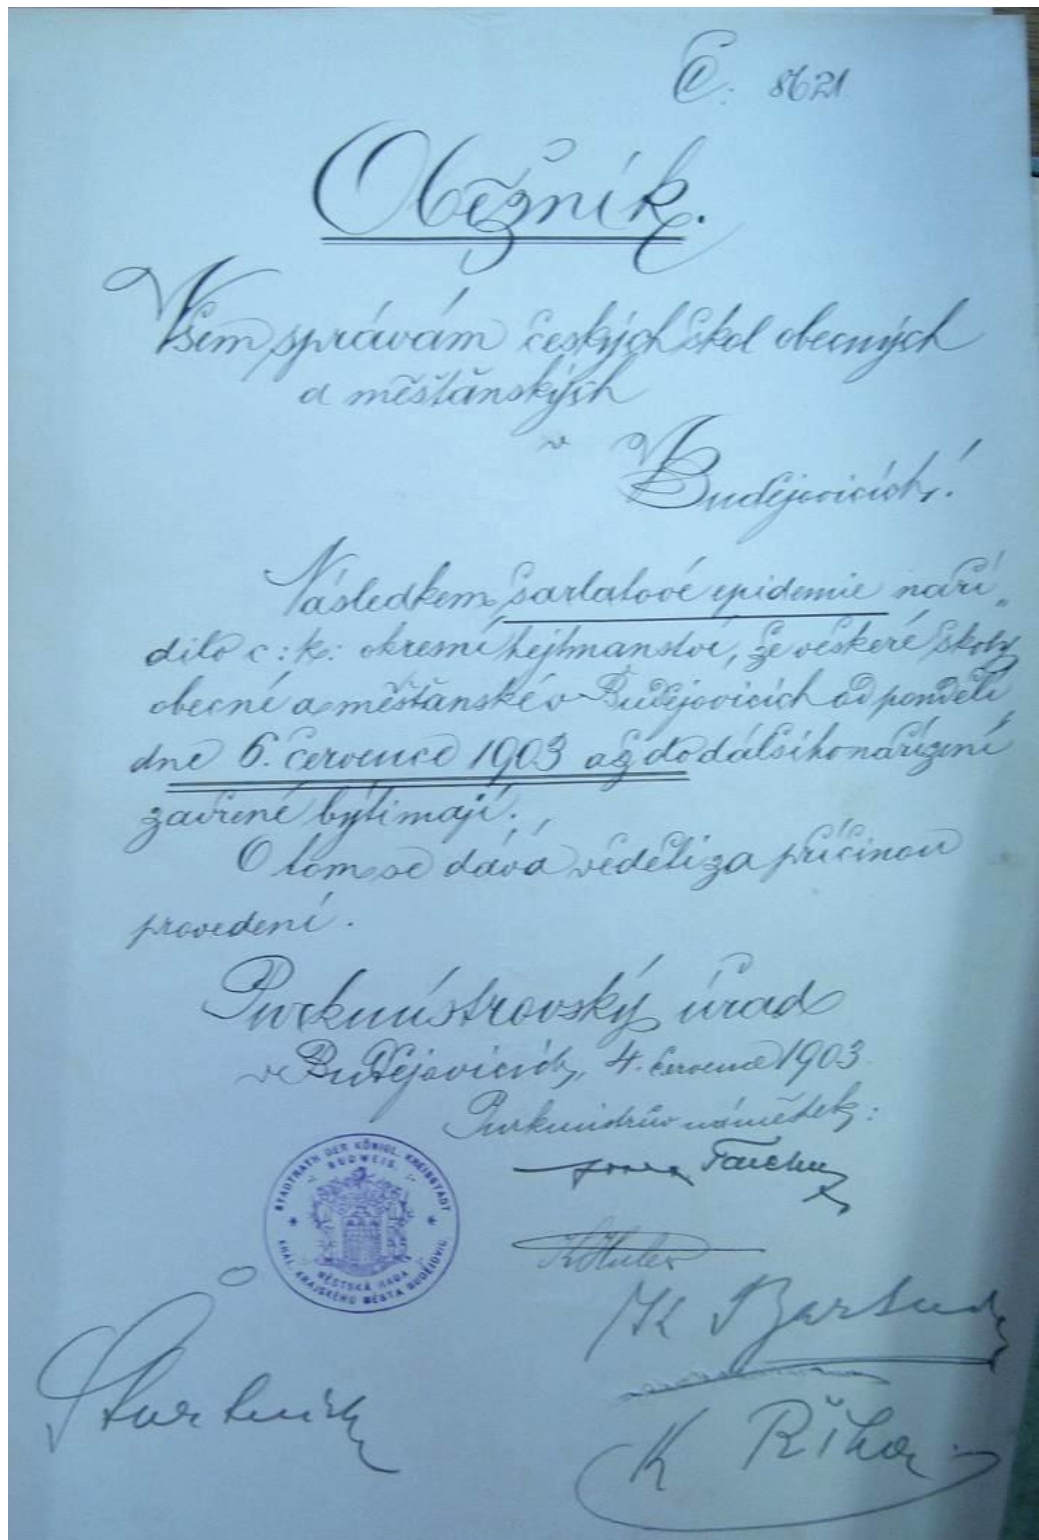 Č: 8621
Oběžník.
Všem správám českých škol obecných
a měšťanských
v
Budějovicích!
Následkem šarlatové epidemie naří„
dilo c: k: okresní hejtmanství, že věškeré školy
obecné a měšťanské v Budějovicích od pondělí
dne 6. července 1903 až do dalšího nařízení
zavřené býti mají.
O tom se dává věděti za příčinou
provedení.
Purkmistrovský úřad
v Budějovicích, 4. července 1903.
Purkmistrův náměstek:
STADTRATH DER KÖNIGL. KREISSTADT
BUDWEIS.
MĚSTSKÁ RADA
KRÁL. KRAJSKÉHO MĚSTA BUDĚJOVIC
K Říha